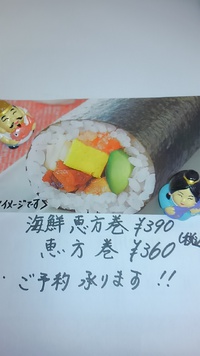 イメージです
海鮮恵方巻 ¥390
恵方巻 ¥360
ご予約承ります!!